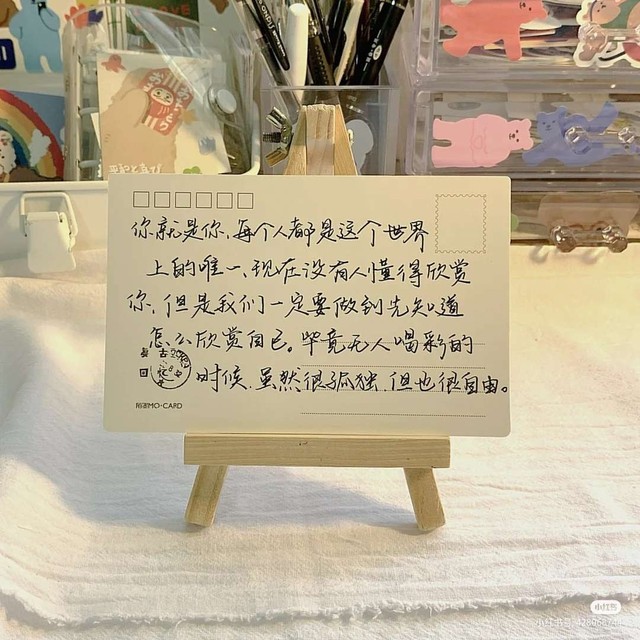 你就是你,每个人都是这个世界
上的唯一、现在没有人懂得欣赏
你,但是我们一定要做到先知道
怎么欣赏自己。毕竟无人喝彩的
时候.虽然很孤独.但也很自由。
陌墨MO·CARD
小红书